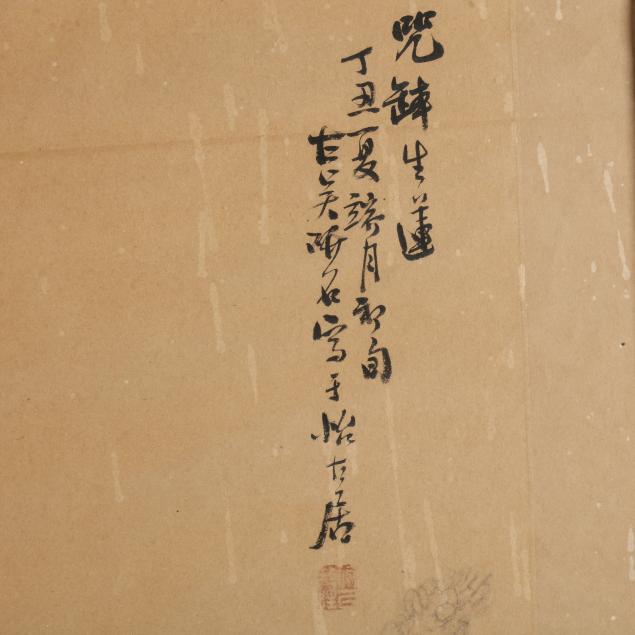 咒缽生蓮
丁丑夏端月初旬
古吳陳名寫于怡古居